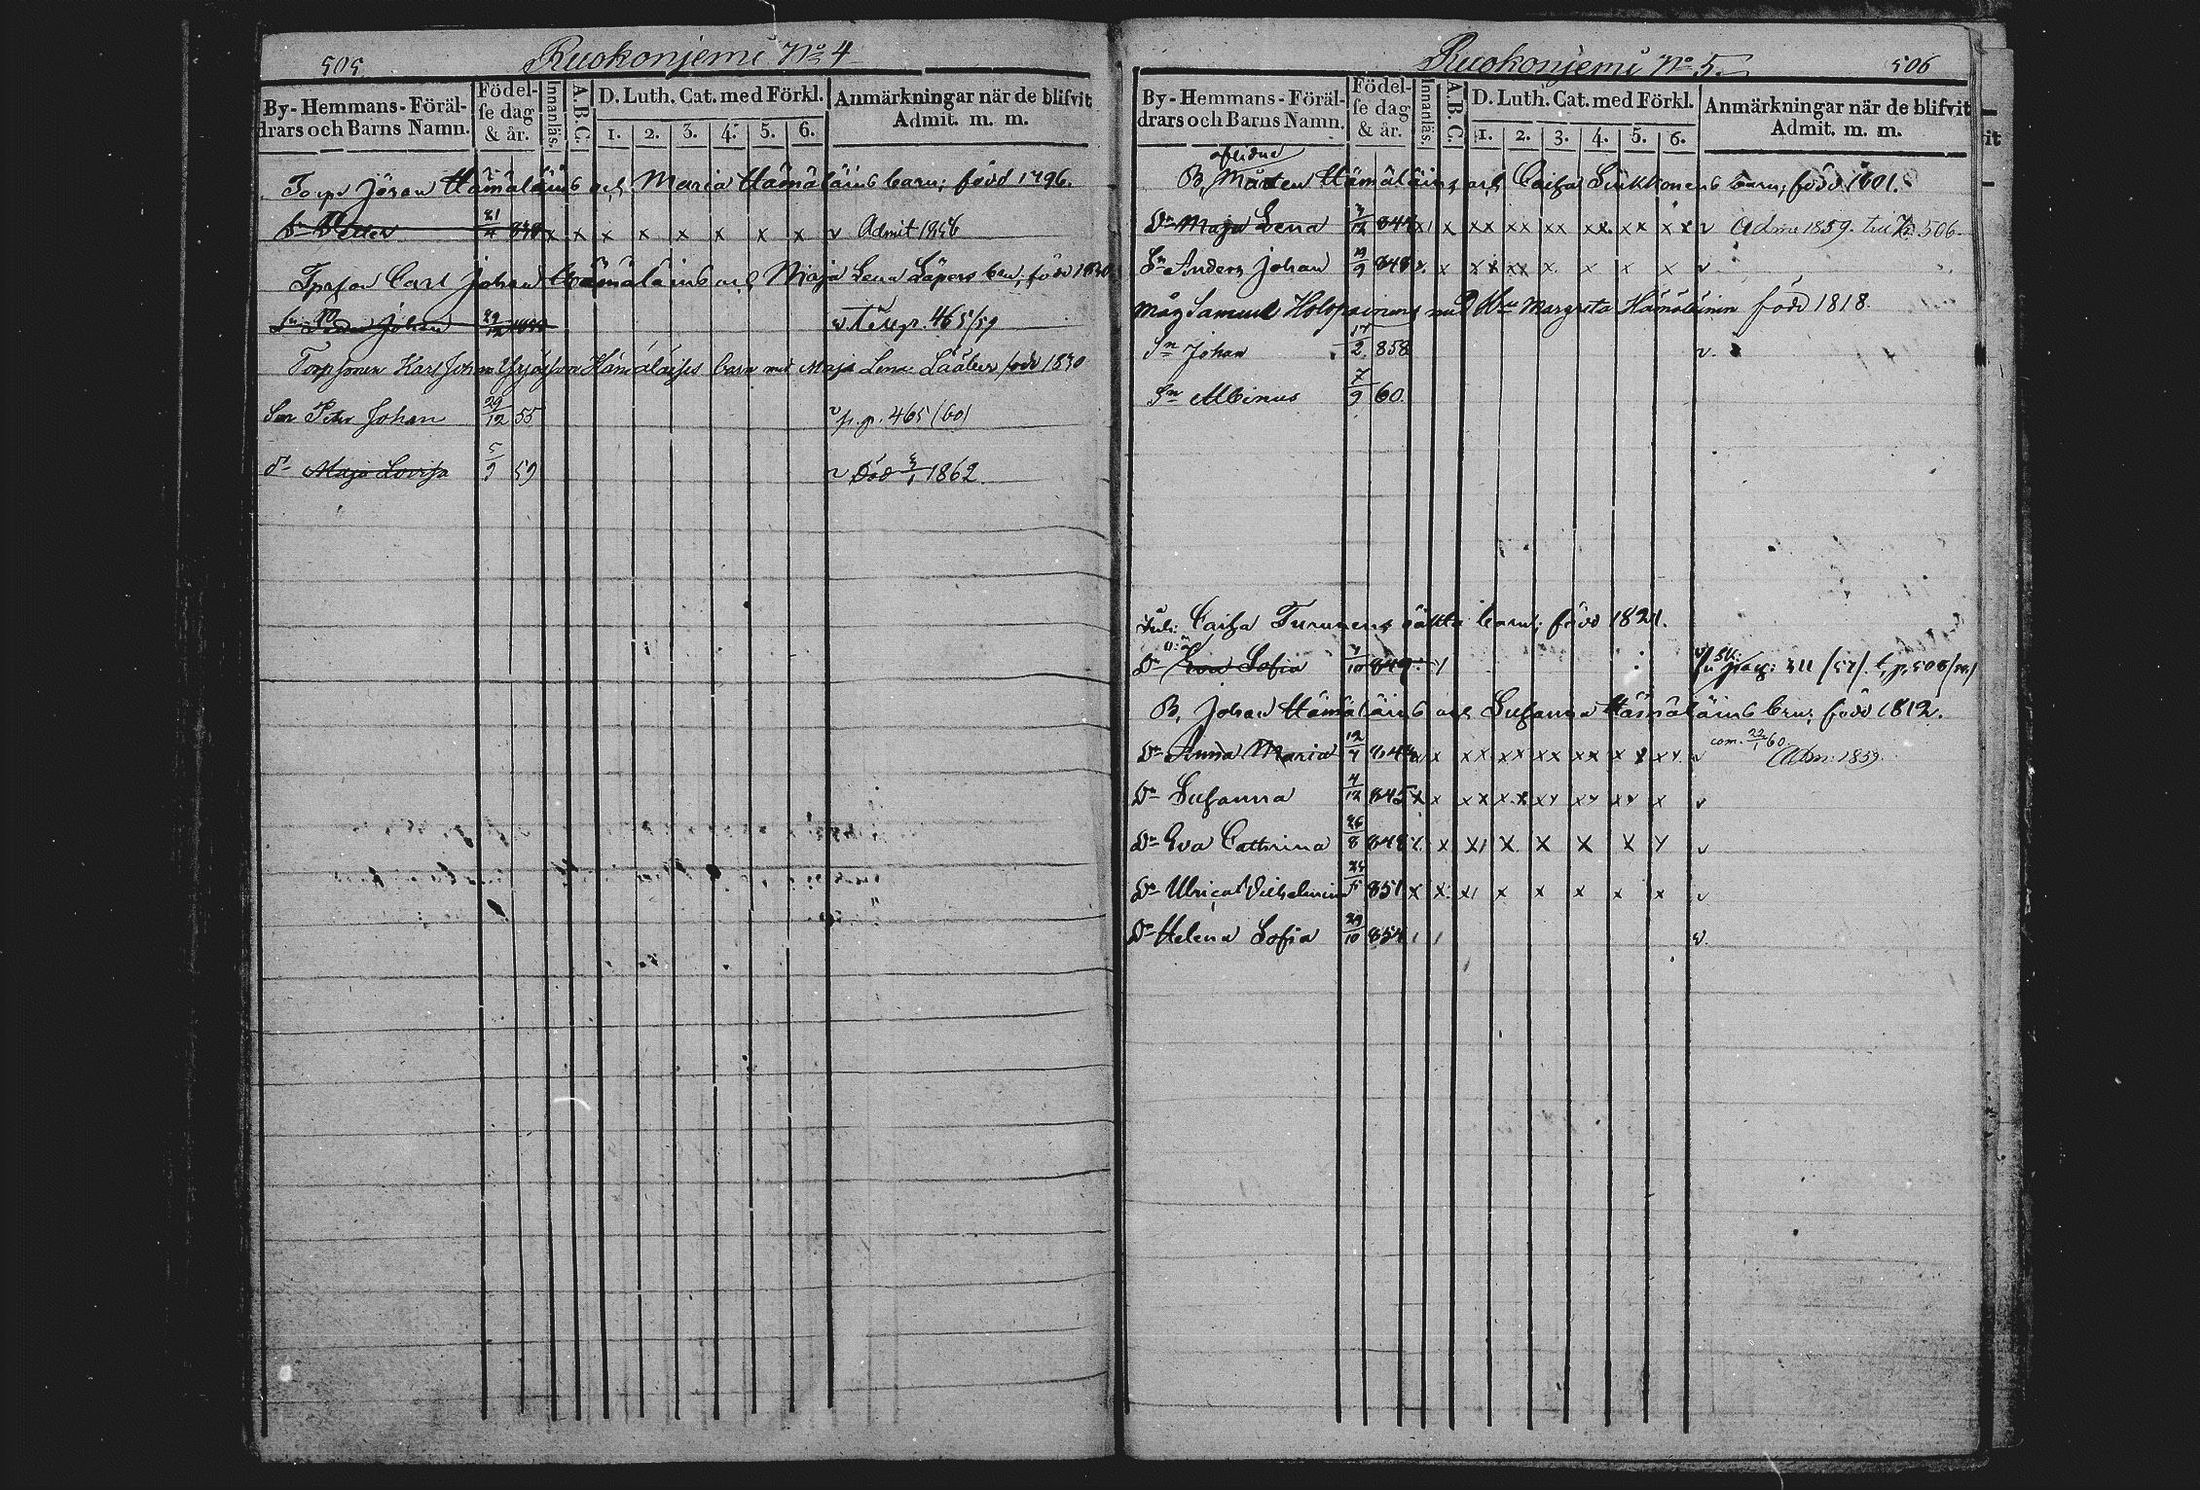 505
Ruokonjemi No 4
By-Hemmans-Föräl-
drars och Barns Namn.
Födel-
se dag
& år.
Innanläs.
A.B.C.
D. Luth. Cat. med Förkl.
1. 2. 3. 4. 5. 6.
Anmärkningar när de blifvit
Admit. m. m.
Torp. Jöran Hämäläins och Maria Hämäläins barn; född 1796.
Sn Petter 21/4 838 x x x x x x x x v Admit 1856
Carl Johan Hämäläins och Maja Lena
Sn Johan 29/12 v 465/59
Karl Johan Hämäläises barn med Maja Lena född 1830
Son Peter Johan 29/12 55 v p. 465/60
Dr Maja Lovisa 5/9 59 v Död 1862.
Ruokonjemi No 5.
506
By-Hemmans-Föräl-
drars och Barns Namn.
Födel-
se dag
& år.
Innanläs.
A.B.C.
D. Luth. Cat. med Förkl.
1. 2. 3. 4. 5. 6.
Anmärkningar när de blifvit
Admit. m. m.
aflidne
B. Mårten Hämäläins och Caisa Sinkkonens barn; född 1801.
Dr Maja Lena 3/12 844 x x xx xx xx xx xx xx v Adm 1859. till 506.
Sn Anders Johan 848 x x xx xx x x x x v
Måg Samuel Holopainens med Hu Margreta Hämäläinen född 1818.
Sn Johan 17/2 858 v.
Sn Albinus 7/9 60.
Caisa Turunens oäkta barn; född 1821.
Dr Eva Sofia 849
B. Johan Hämäläins och Susanna Hämäläins brn; född 1812.
Dr Anna Maria 12/7 x xx xx xx xx x x xx v com. 22/1 60. Adm. 1859.
Dr Susanna 4/12 845 x x xx xx xx xx xx x v
Dr Eva Cathrina 26/8 848 x x x x x x x v
Dr Ulrica Vilhelmina 851 x x x x x x x v
Dr Helena Sofia 29/10 854 v.